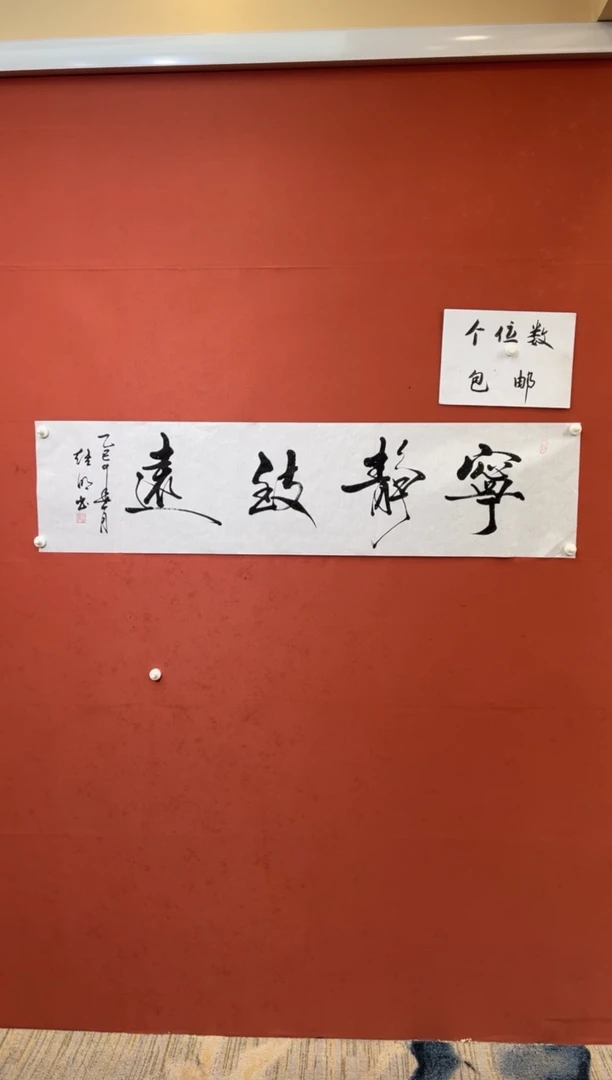 个位数
包邮
寧靜致遠
乙巳年春月